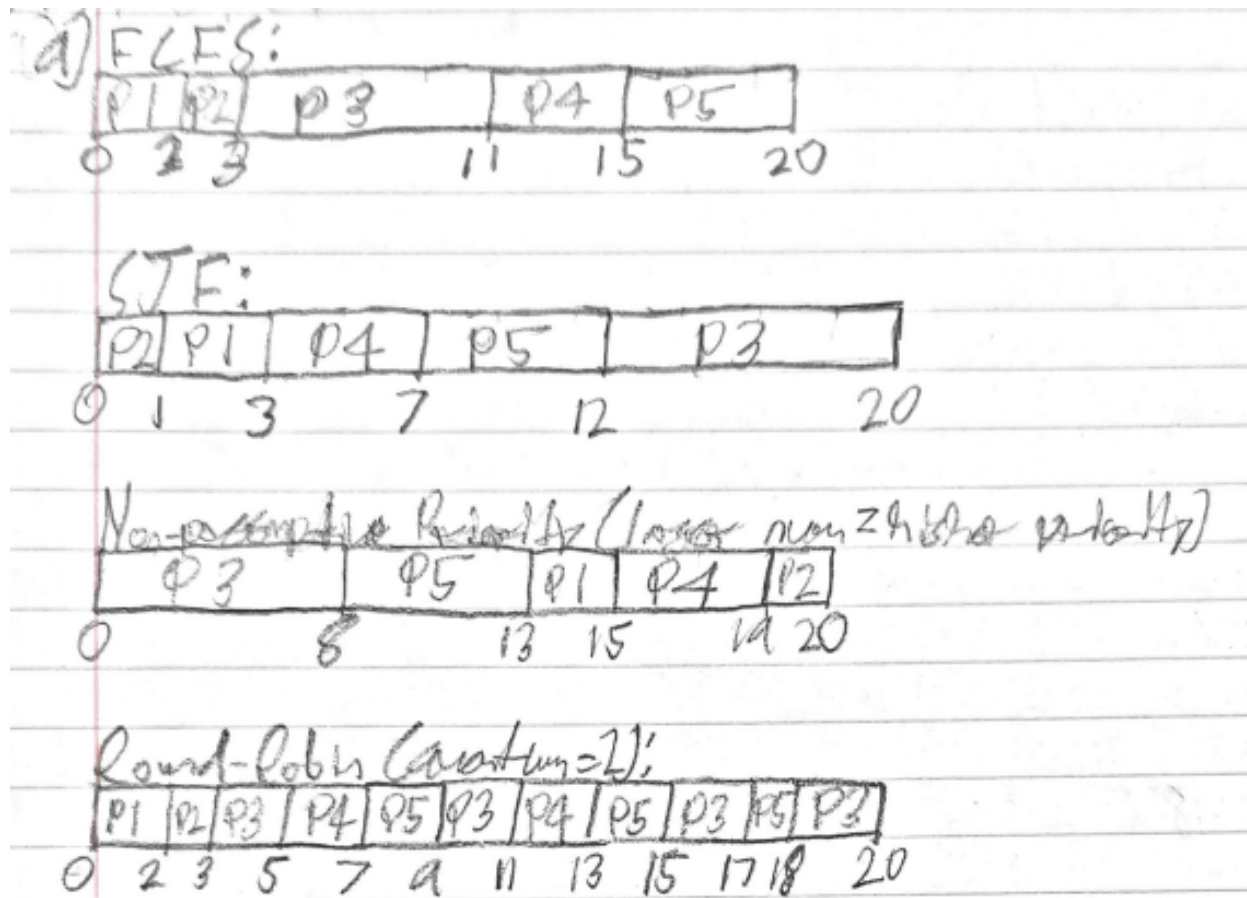 a) FCFS:
P1 P2 P3 P4 P5
0 2 3 11 15 20
SJF:
P2 P1 P4 P5 P3
0 1 3 7 12 20
Non-preemptive Priority (lower num = higher priority)
P3 P5 P1 P4 P2
0 8 13 15 19 20
Round-Robin (quantum=2):
P1 P2 P3 P4 P5 P3 P4 P5 P3 P5 P3
0 2 3 5 7 9 11 13 15 17 18 20